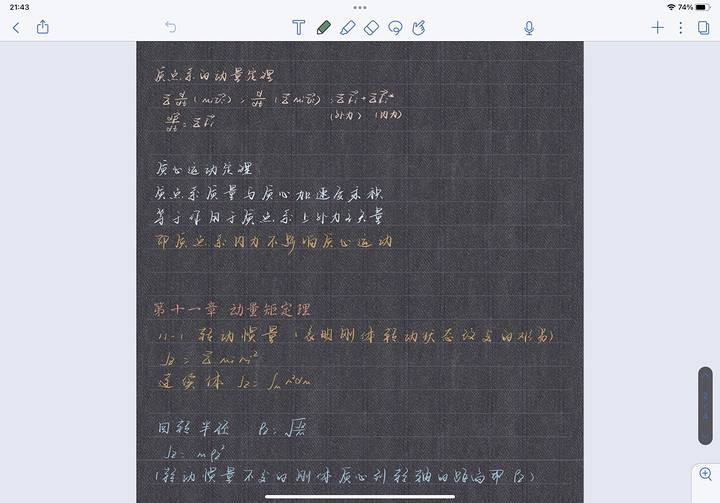 21:43
74%
T
质点系的动量定理
Σ d/dt (mᵢv⃗ᵢ) = d/dt (Σ mᵢv⃗ᵢ) = ΣF⃗ᵢ + ΣF⃗ᵢ*
(外力) (内力)
dp⃗/dt = ΣF⃗ᵢ
质心运动定理
质点系质量与质心加速度乘积
等于作用于质点系上外力主矢量
即质点系内力不影响质心运动
第十一章 动量矩定理
11-1 转动惯量 (表明刚体转动状态改变的难易)
Jz = Σ mᵢrᵢ²
连实体 Jz = ∫ₘ r²dm
回转半径
Jz = mρz²
(转动惯量不变的刚体质心到转轴的距离即 ρz)
2 / 4